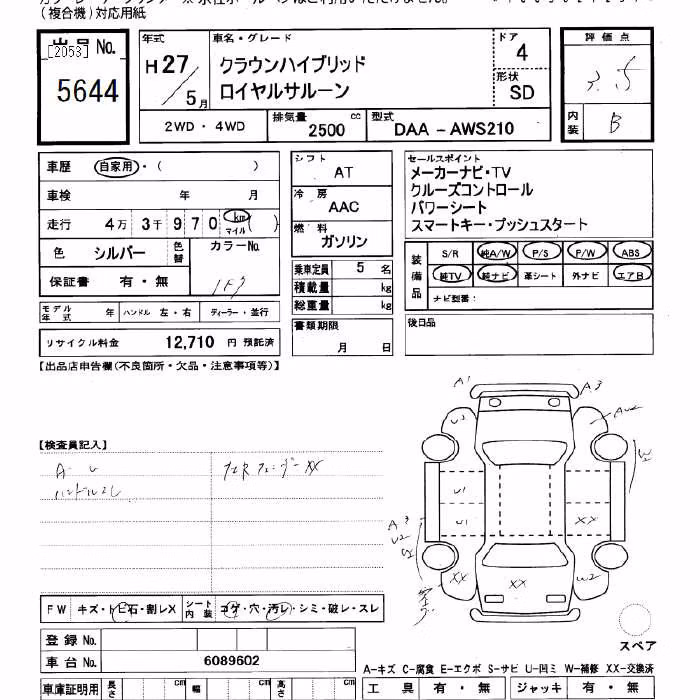 (複合機)対応用紙
出品 No.
[2053]
5644
年式
H27/5月
車名・グレード
クラウンハイブリッド
ロイヤルサルーン
ドア
4
形状
SD
2WD・4WD
排気量 2500 cc
型式 DAA-AWS210
評価点
3.5
内装 B
車歴 自家用・( )
車検 年 月
走行 4万 3千 9 7 0 km マイル ( )
色 シルバー 色替 カラーNo.
保証書 有・無 1F7
モデル年式 年 ハンドル 左・右 ディーラー・並行
リサイクル料金 12,710 円 預託済
シフト
AT
冷房
AAC
燃料
ガソリン
乗車定員 5 名
積載量 kg
総重量 kg
書類期限
月 日
セールスポイント
メーカーナビ・TV
クルーズコントロール
パワーシート
スマートキー・プッシュスタート
装備品 S/R 純A/W P/S P/W ABS
純TV 純ナビ 革シート 外ナビ エアB
ナビ型番:
後日品
【出品店申告欄(不良箇所・欠品・注意事項等)】
【検査員記入】
A・U
ハンドルスレ
XX
A1
A3
U2
U1
U1
XX
A3
U2
XX
XX
W2
FW キズ・トビ石・割レX シート内装 コゲ・穴・汚レ・シミ・破レ・スレ
スペア
登録 No.
車台 No. 6089602
A-キズ C-腐食 E-エクボ S-サビ U-凹ミ W-補修 XX-交換済
車庫証明用 長さ cm 幅 cm 高さ cm
工具 有・無 ジャッキ 有・無